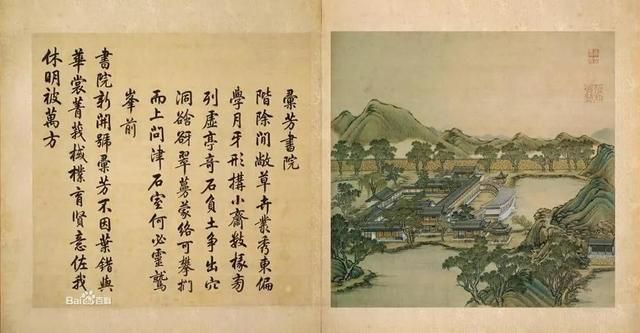 彙芳書院
階除閒敞草卉叢秀東偏
學月牙形構小齋數椽旁
列虛亭奇石負土爭出穴
洞谽谺翠蔓蒙絡可攀捫
而上問津石室何必靈鷲
峯前
書院新開號彙芳不因葉錯與
華裳菁莪棫樸育賢意佐我
休明被萬方
Bai百科